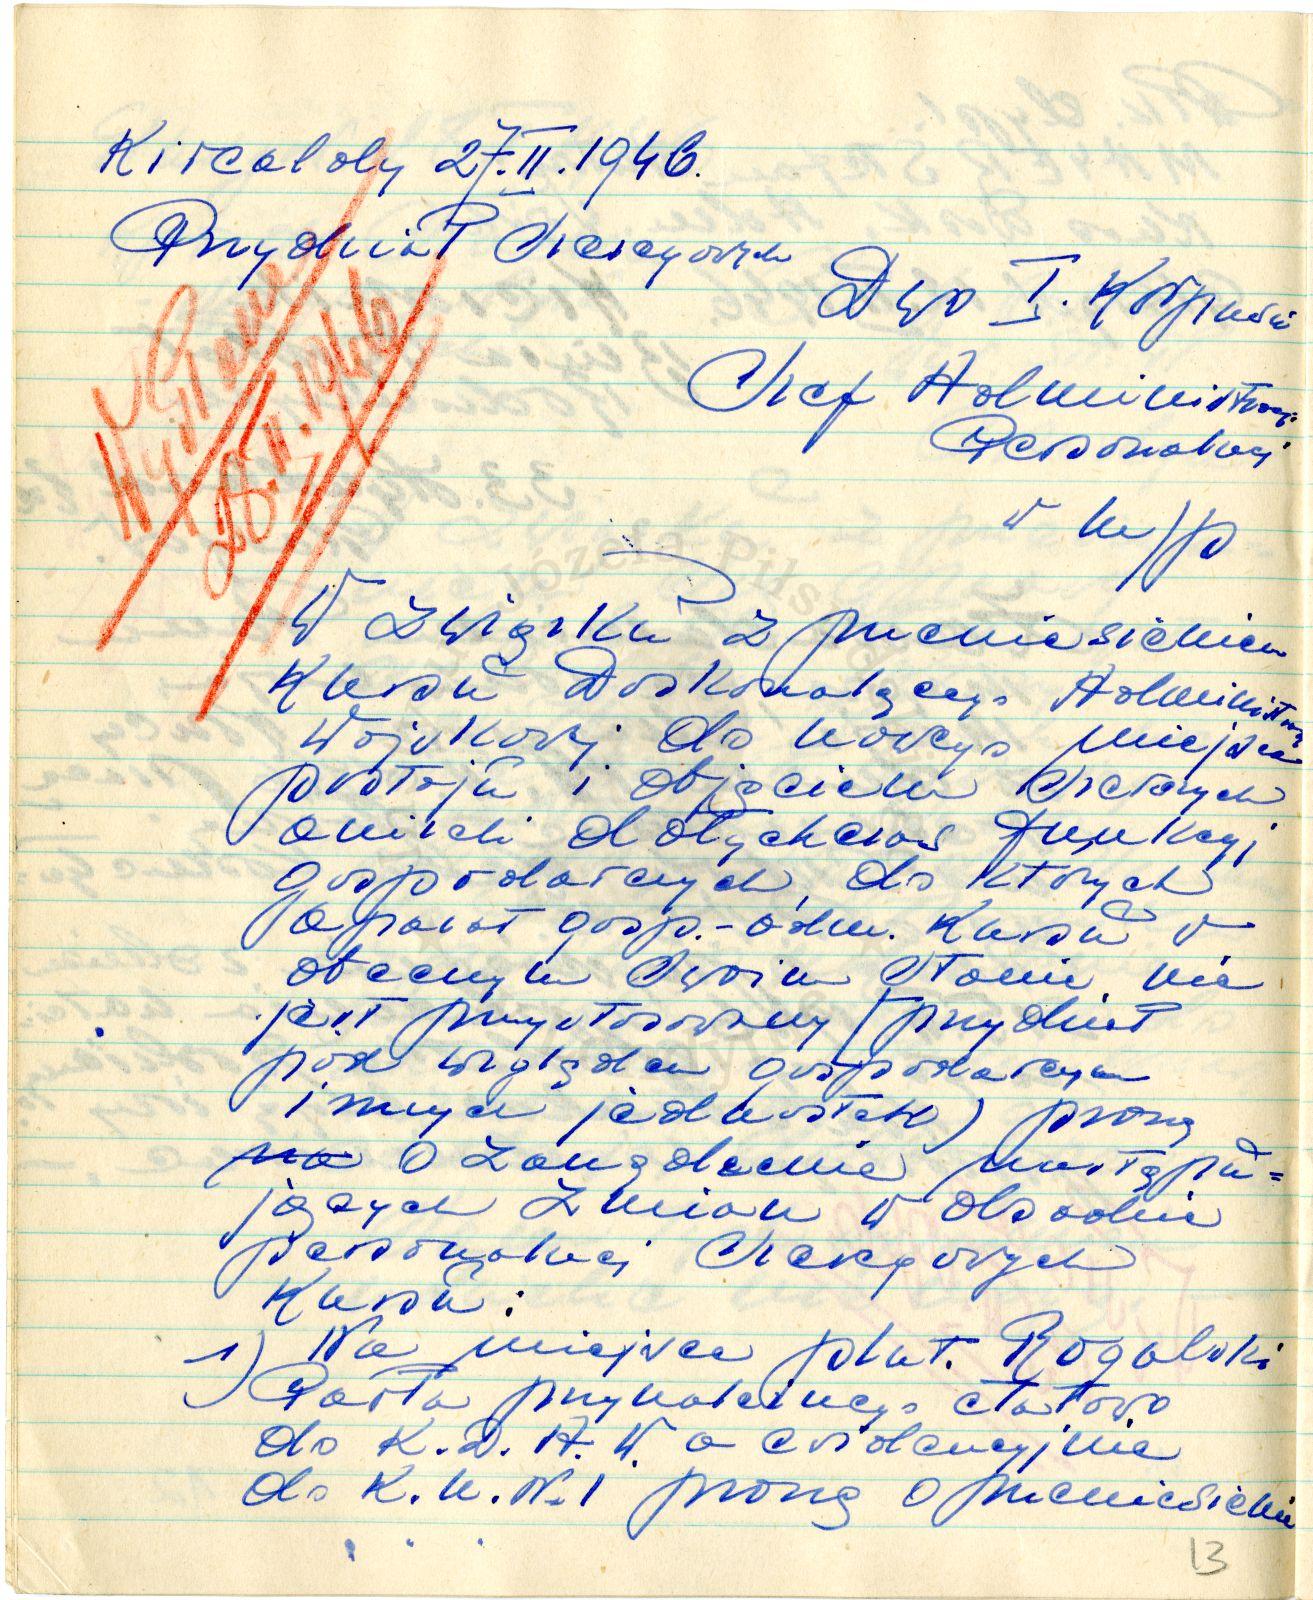 Kircaloly 27.II.1946.
Przydział Szeregowych
Wysłane
28.II.1946
Dwo I. Korpusu
Szef Administracji
Personalnej
w m/p
W związku z przeniesieniem
Kursu Doskonalącego Administracji
Wojskowej do nowego miejsca
postoju i objęciem szeregu
dotychczas funkcyj
gospodarczych, do których
aparat gosp.-adm. Kursu w
obecnym swoim stanie nie
jest przystosowany (przydział
pod względem gospodarczym
innych jednostek) proszę
na o zarządzenie następu=
jących zmian w obsadzie
personalnej Szeregowych
Kursu:
1) Na miejsce plut. Rogalski
Rafła przynależnego etatowo
do K.D.A.W a ewidencyjnie
do K.U.Nr.1 proszę o przeniesienie
13